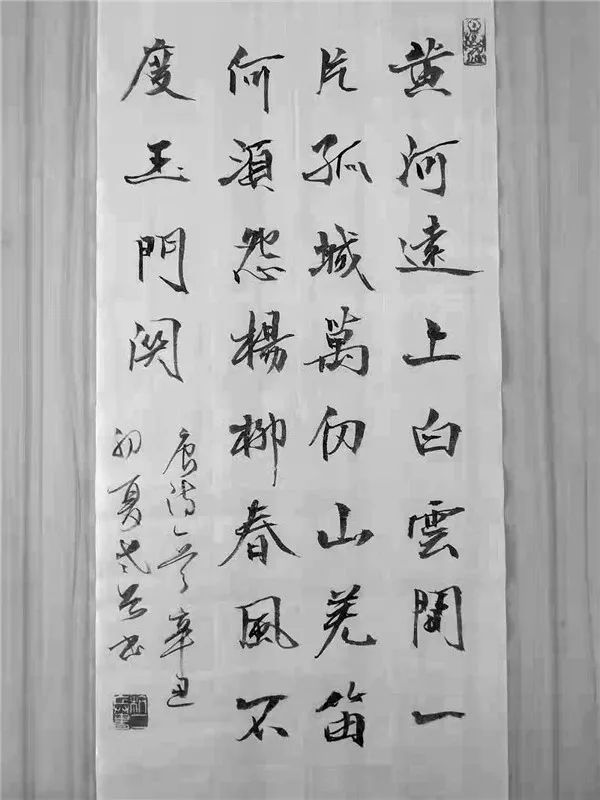 黄河遠上白雲間一
片孤城萬仞山羌笛
何須怨楊柳春風不
度玉門関
唐詩一首辛丑
初夏书